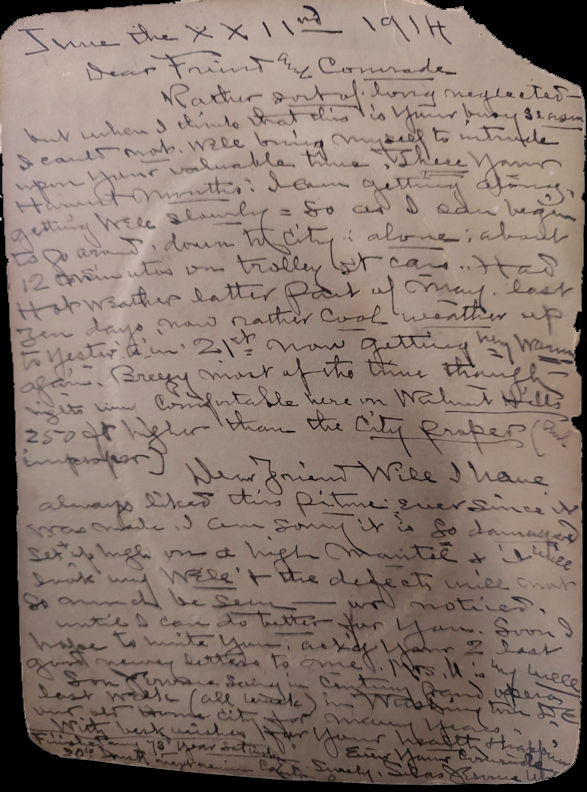 June the XX 11nd 1914
Dear Friend and Comrade
Rather sort of long neglected -
but when I think that this is your busy season
I could not well bring myself to intrude
upon your valuable time. These your
Harvest Months: I am getting along,
getting well slowly = so as I can begin
to go around; down to city: alone; about
12 minutes on trolley st cars. Had
Hot Weather latter part of May. last
Ten days now rather cool weather up
to yester'd 21st now getting very warm
again. Breezy most of the time though
nights comfortable here on Walnut Hills
250 ft higher than the City proper (and
improper)
Dear Friend Will I have
always liked this picture ever since it
was made. I am sorry it is so damaged
set it high on a high Mantel & it will
look very Well & the defects will not
so much be seen - nor noticed.
until I can do better for you. Soon I
hope to write you; your 2 last
good newsy letters to me. Mrs. U is very well
Son in Century Grand opera
last week (all week) in Washington D.C.
our old Home City for many years.
With best wishes for your health Happiness
73d year Saturday. Ever Your Comrade
20th South